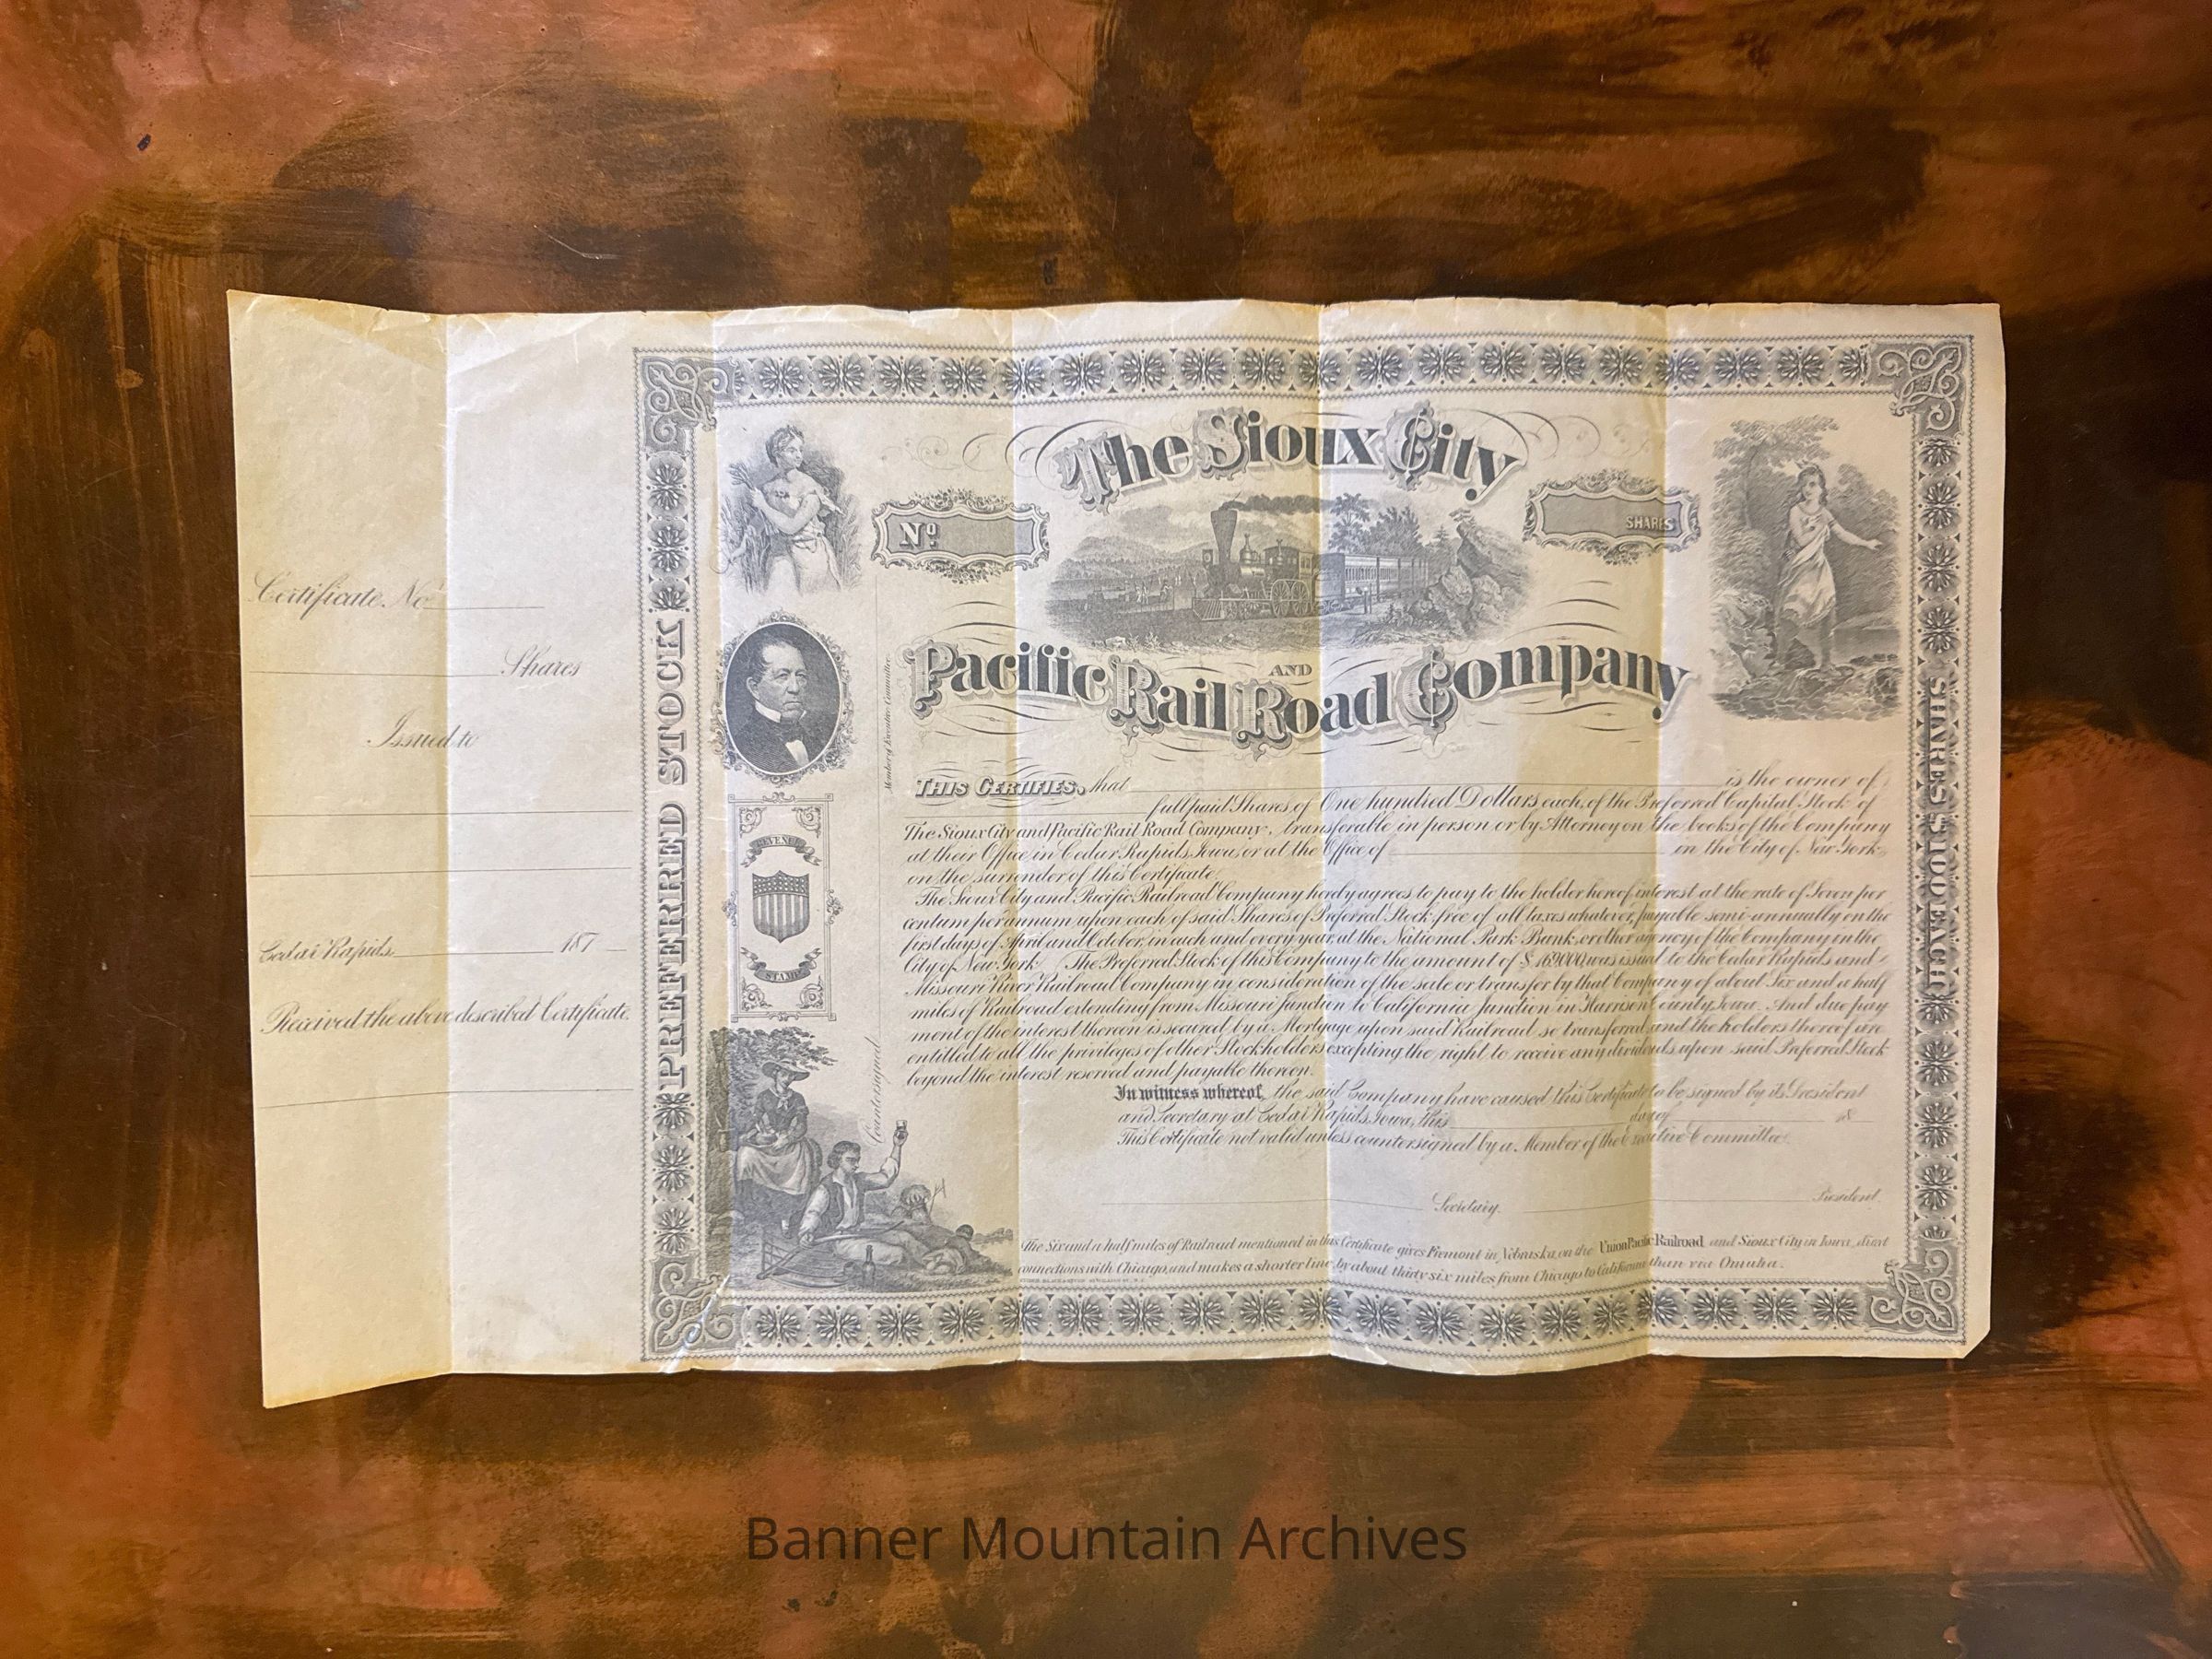 Certificate No.
Shares
Issued to
Cedar Rapids 187
Received the above described Certificate.
PREFERRED STOCK
The Sioux City
No.
SHARES
AND
Pacific Rail Road Company
REVENUE
STAMP
Countersigned
Member of Executive Committee.
This Certifies, that is the owner of
full paid Shares, of One hundred Dollars each, of the Preferred Capital Stock of
The Sioux City and Pacific Rail Road Company, transferable in person or by Attorney on the books of the Company
at their Office in Cedar Rapids, Iowa, or at the Office of in the City of New York,
on the surrender of this Certificate.
The Sioux City and Pacific Railroad Company hereby agrees to pay to the holder hereof interest at the rate of Seven per
centum per annum upon each of said Shares of Preferred Stock, free of all taxes whatever, payable semi-annually on the
first days of April and October, in each and every year, at the National Park Bank, or other agency of the Company in the
City of New York. The Preferred Stock of this Company to the amount of $169000, was issued to the Cedar Rapids and
Missouri River Railroad Company in consideration of the sale or transfer by that Company of about Six and a half
miles of Railroad extending from Missouri Junction to California Junction in Harrison County, Iowa. And due pay
ment of the interest thereon is secured by a Mortgage upon said Railroad so transferred, and the holders thereof are
entitled to all the privileges of other Stockholders excepting the right to receive any dividends upon said Preferred Stock
beyond the interest reserved and payable thereon.
In witness whereof, the said Company have caused this Certificate to be signed by its President
and Secretary at Cedar Rapids, Iowa, this day of 18
This Certificate not valid unless countersigned by a Member of the Executive Committee.
Secretary. President.
The Six and a half miles of Railroad mentioned in this Certificate gives Fremont in Nebraska, on the Union Pacific Railroad, and Sioux City in Iowa, direct
connections with Chicago, and makes a shorter line by about thirty six miles from Chicago to California than via Omaha.
SHARES $100 EACH
Banner Mountain Archives